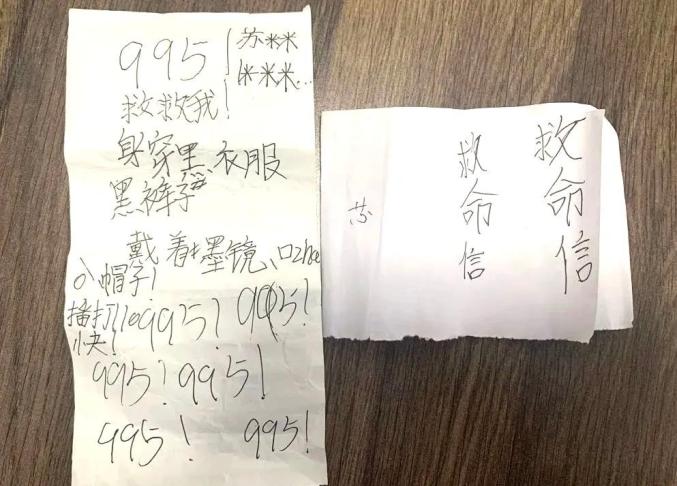 995！苏※※
※※※...
救救我！
身穿黑衣服
黑裤子
戴着墨镜、口zhao
小帽子！
播打110 995！995！
快！
995！995！
995！
995！
救命信
救命信
苏